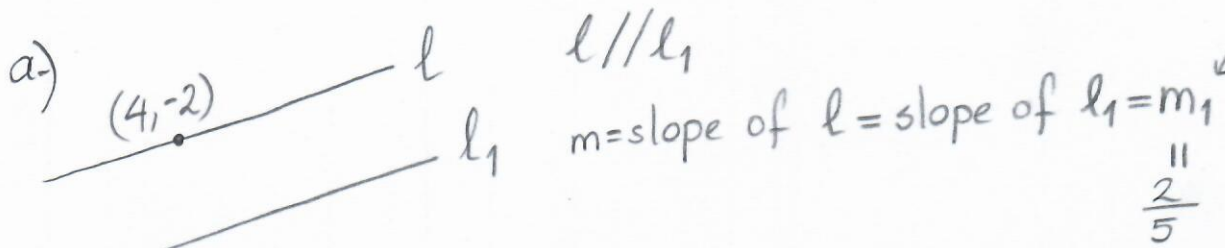 a-)
(4,-2)
l
l₁
l//l₁
m=slope of l=slope of l₁=m₁
=
2/5